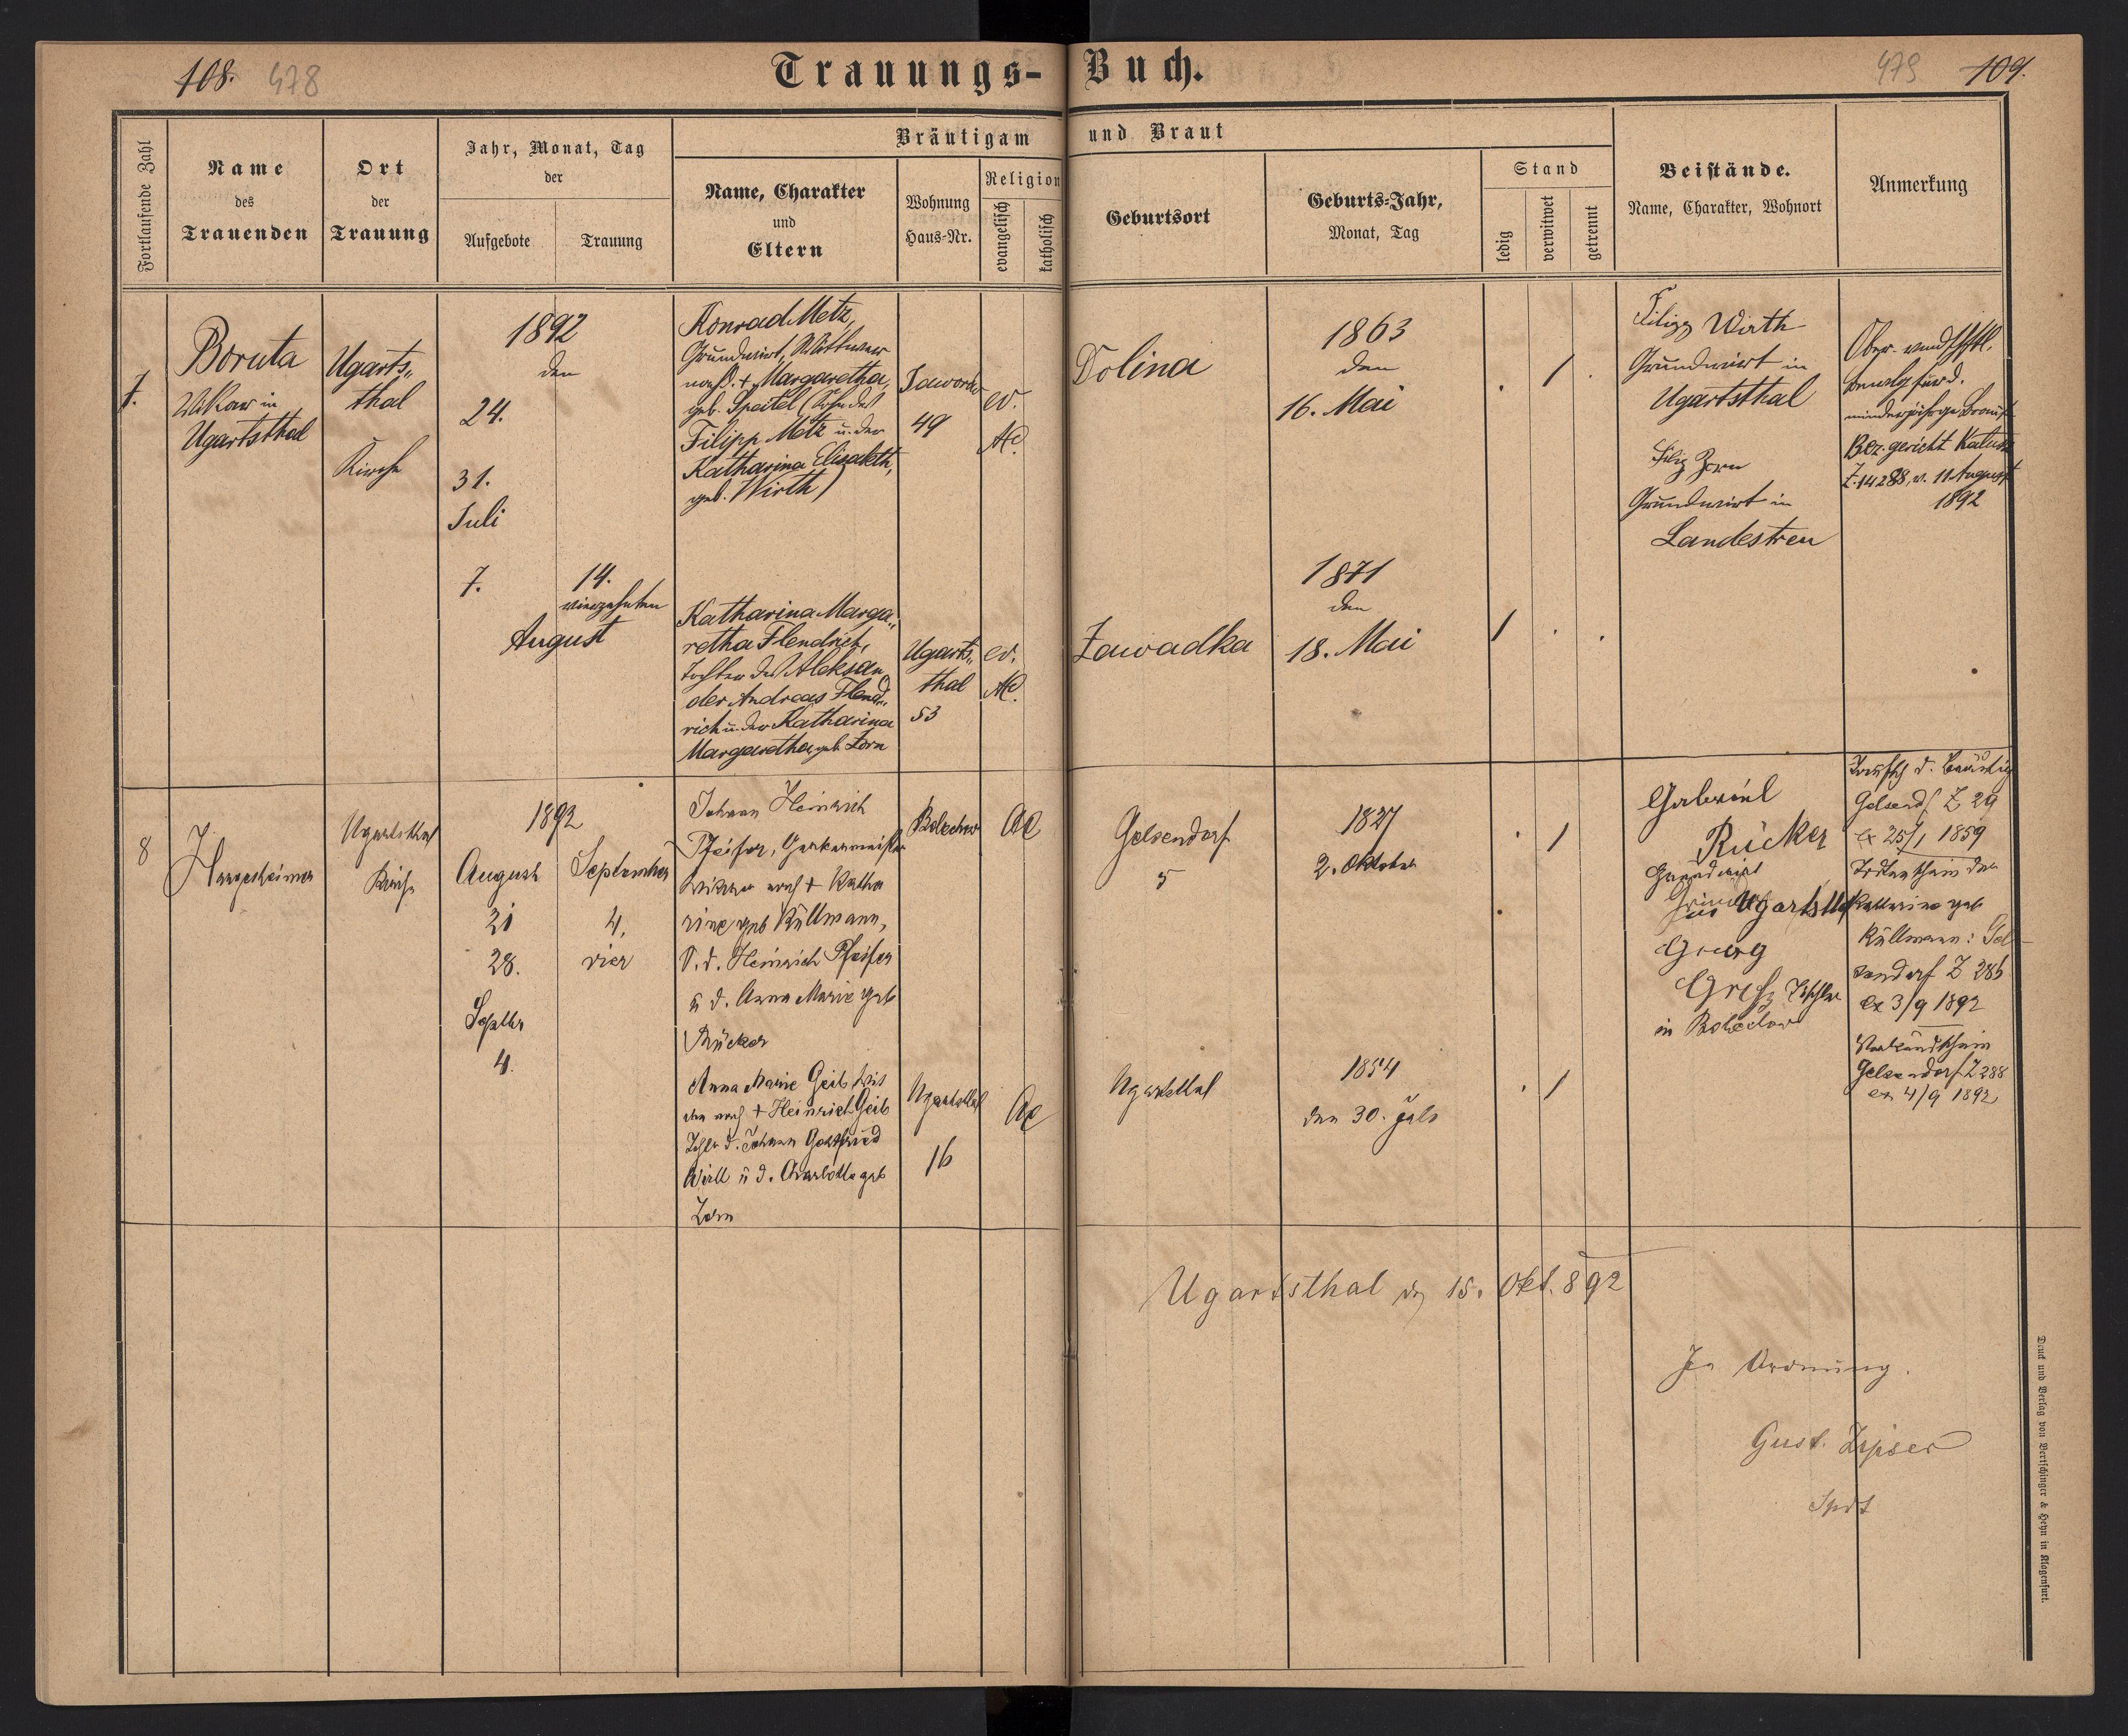 108. 478
Trauungs- Buch.
479 109.
Fortlaufende Zahl
Name
des
Trauenden
Ort
der
Trauung
Jahr, Monat, Tag
der
Aufgebote
Trauung
Bräutigam und Braut
Name, Charakter
und
Eltern
Wohnung
Haus-Nr.
Religion
evangelisch
katholisch
Geburtsort
Geburts-Jahr,
Monat, Tag
Stand
ledig
verwitwet
getrennt
Beistände.
Name, Charakter, Wohnort
Anmerkung
7.
Boruta
Vikar in
Ugartsthal
Ugarts„
thal
Kirche
1892
den
24.
31.
Juli
7.
14.
vierzehnten
August
Konrad Metz,
Grundwirt, Wittwer
nach d. + Margaretha,
geb. Speitel (Sohn des
Filipp Metz u. der
Katharina Elisabeth,
geb. Wirth)
Jaworów
49
ev.
AC.
Dolina
1863
den
16. Mai
. / .
Filipp Wirth
Grundwirt in
Ugartsthal
Filip Zorn
Grundwirt in
Landestreu
minderjährige Braut
Bez. gericht Katusz
Z. 14288, v. 11 August
1892
Katharina Marga„
retha Flendrich,
Tochter des Aleksan„
der Andreas Flend„
rich u. der Katharina
Margaretha, geb. Zorn
Ugarts„
thal
53
ev.
AC.
Zawadka
1871
den
18. Mai
/ . .
8
Hargesheimer
Ugartsthal
Kirche
1892
August
21
28.
Septbr
4.
September
4.
vier
Johann Heinrich
Pfeifer, Gerbermeister
Witwer nach + Katha
rine geb Küllmann,
S. d. Heinrich Pfeifer
u d. Anna Marie geb
Rücker
Bolechow
AC
Gelsendorf
5
1827
2. Oktober
. /
Gabriel
Rücker
Grundwirt
in Ugartsthal
Georg
in Bolechow
Taufsch d. Bräutig
Gelsend Z 29
ex 25/1 1859
Todtenschein der
Katharina geb
Küllmann: Gel-
sendorf Z 286
ex 3/9 1892
Verkündschein
Gelsendorf Z 288
ex 4/9 1892
Anna Marie Geib Wit
we nach + Heinrich Geib
Tchtr d. Johann Gottfried
u d. Charlotte geb
Zorn
Ugartsthal
16
AC
Ugartsthal
1854
den 30. July
. /
Ugartsthal den 15. Okt. 892
In Ordnung.
Gust. Zipser
Spdt
Druck und Verlag von Bertschinger & Heyn in Klagenfurt.